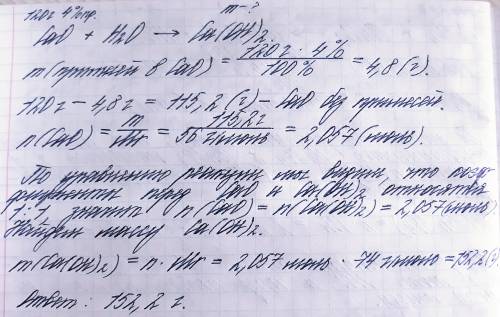 120г 4%пр. m - ?
CaO + H₂O → Ca(OH)₂.
m(примесей в CaO) = 120г · 4% / 100% = 4,8(г).
120г - 4,8г = 115,2(г) - CaO без примесей.
n(CaO) = m / Mr = 115,2г / 56 г/моль = 2,057 (моль).
По уравнению реакции мы видим, что коэф-
фициенты перед CaO и Ca(OH)₂ относятся
1:1, значит n(CaO) = n(Ca(OH)₂) = 2,057(моль)
Найдем массу Ca(OH)₂.
m(Ca(OH)₂) = n · Mr = 2,057 моль · 74 г/моль = 152,2(г).
Ответ: 152,2 г.